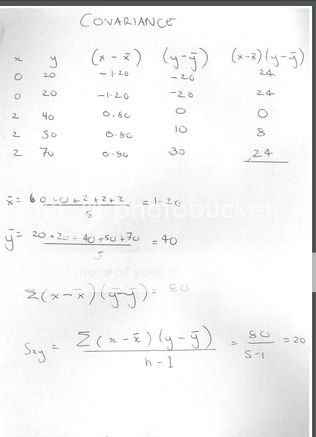 COVARIANCE
x y (x - x̄) (y - ȳ) (x-x̄)(y-ȳ)
0 20 -1.20 -20 24
0 20 -1.20 -20 24
2 40 0.80 0 0
2 50 0.80 10 8
2 70 0.80 30 24
x̄ = 0+0+2+2+2 = 1.20
5
ȳ = 20+20+40+50+70 = 40
5
photobucket
Protect more of your
Σ(x-x̄)(y-ȳ) = 80
Sxy = Σ(x-x̄)(y-ȳ) = 80 = 20
n-1 5-1